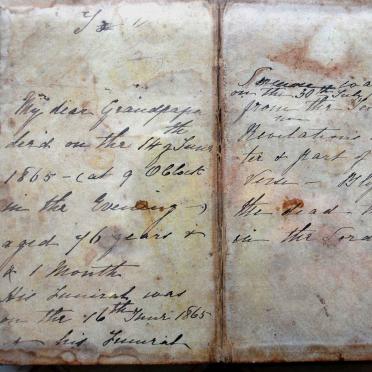 My dear Grandpapa
died on the 14th June
1865 - (at 9 OClock
in the Evening -)
aged 76 years &
& 1 Month
His Funiral was
on the 16th June 1865
& his Funiral
Sermon was
on the 30th July
from the
Revelations
ter & part of
Verse -
the dead -
in the Lord